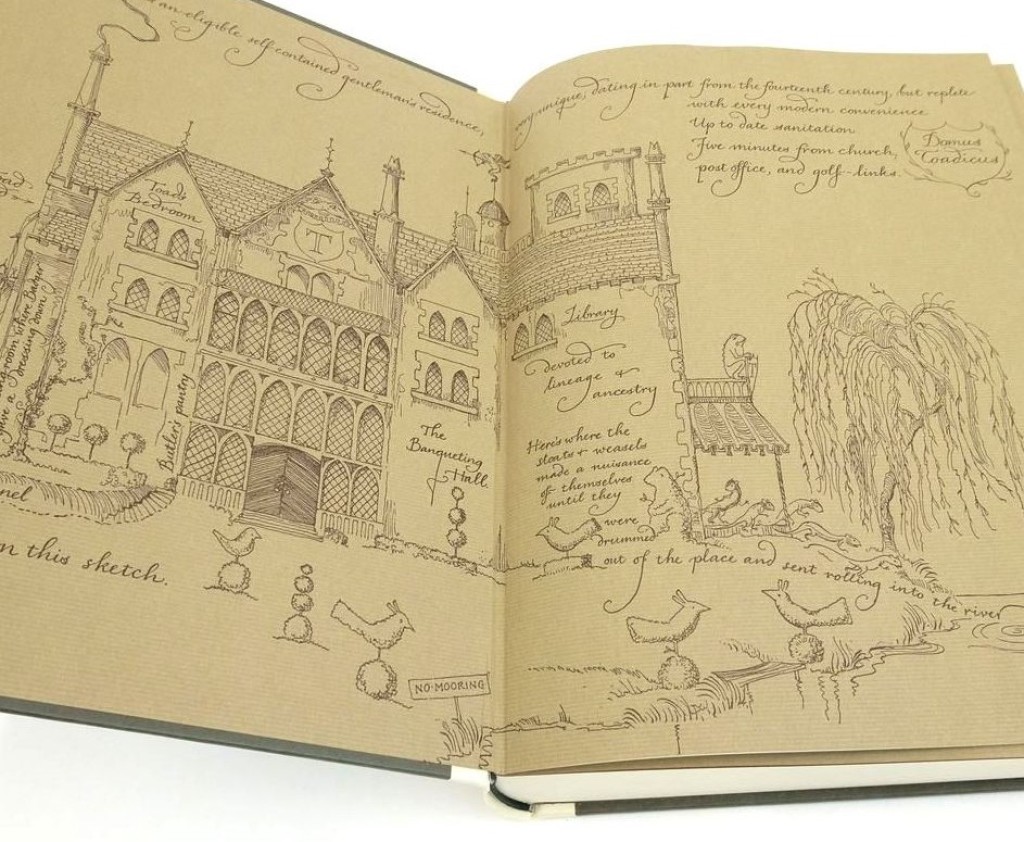 an eligible self-contained gentleman's residence,
very unique, dating in part from the fourteenth century, but replete
with every modern convenience
Up to date sanitation
Five minutes from church,
post office, and golf-links.
Domus
Toadicus
Toad's
Bedroom
T
room where Badger
dressing down
Butler's pantry
The
Banqueting
Hall.
on this sketch.
NO MOORING
Library
devoted to
lineage &
ancestry
Here's where the
stoats & weasels
made a nuisance
of themselves
until they
were
drummed
out of the place and sent rolling into the river